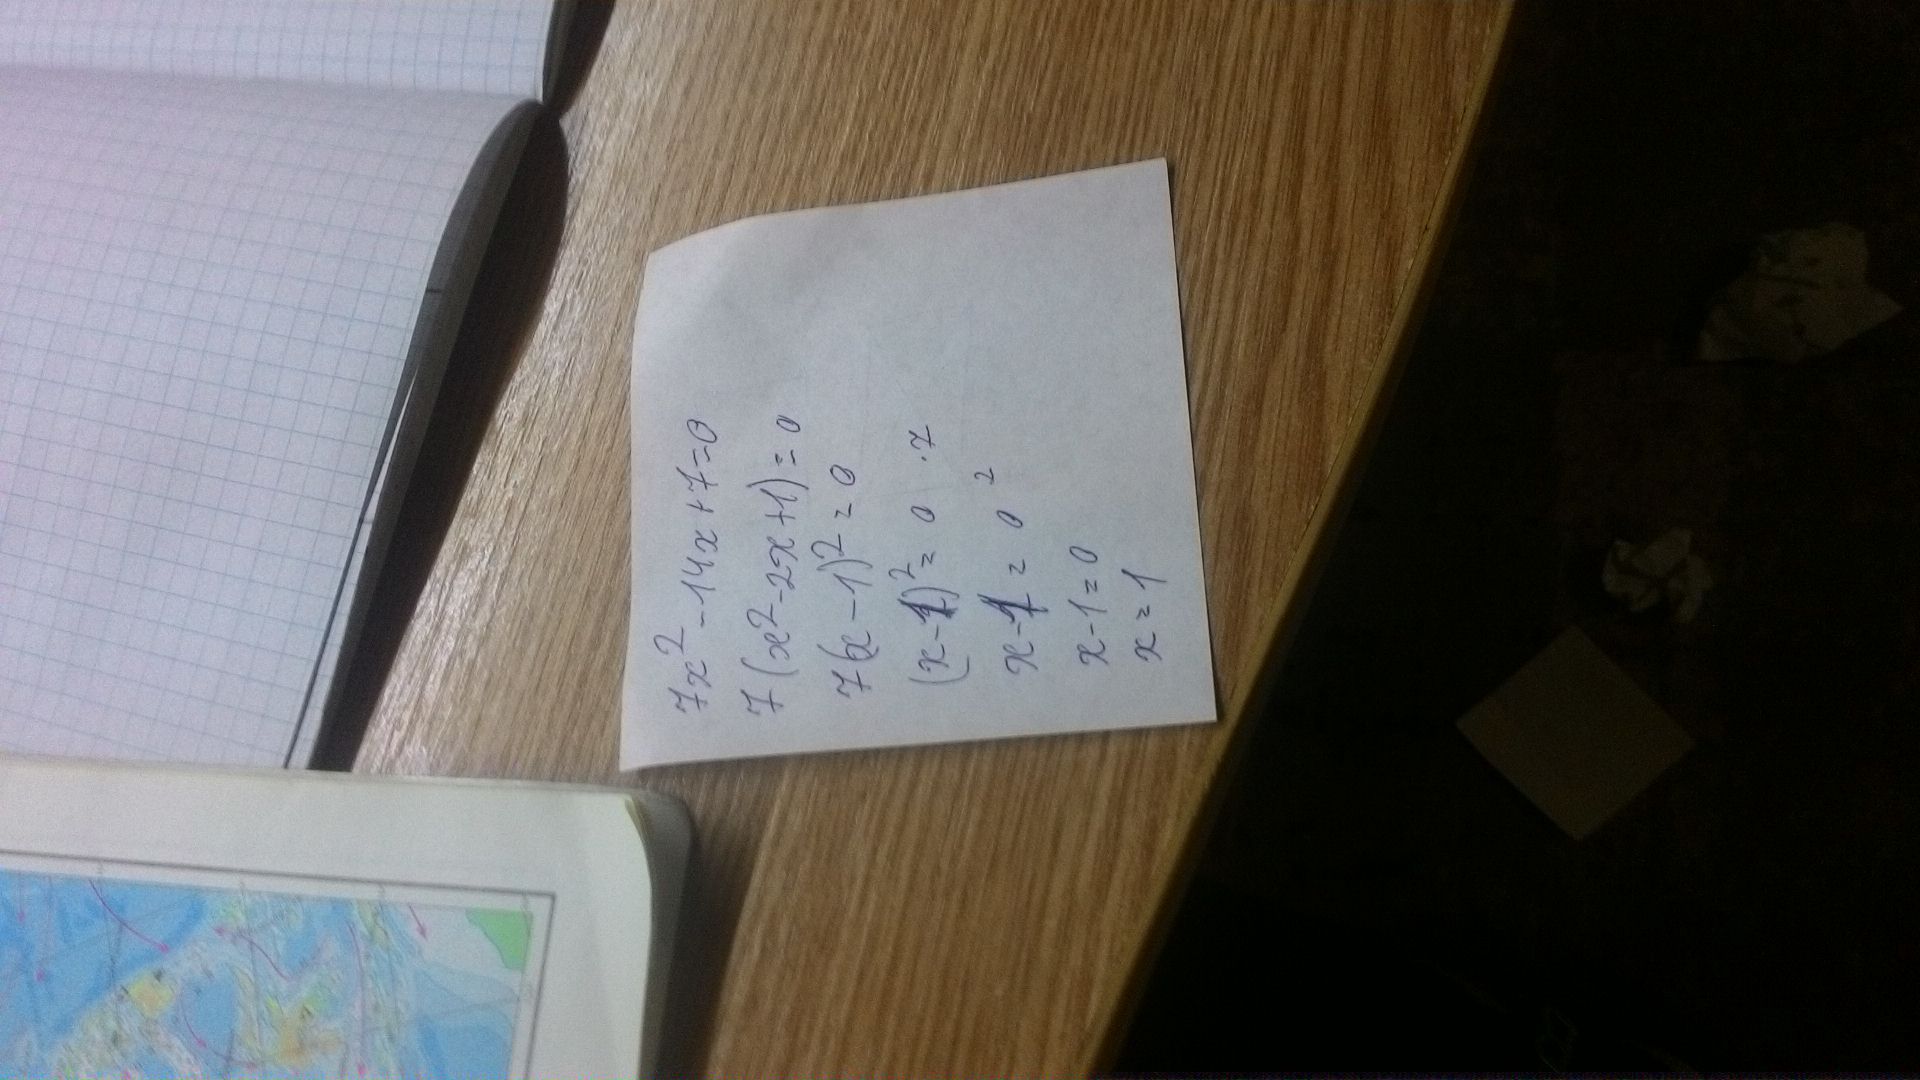 7x² - 14x + 7 = 0
7(x² - 2x + 1) = 0
7(x - 1)² = 0
(x - 1)² = 0 · 7
x - 1 = 0²
x - 1 = 0
x = 1